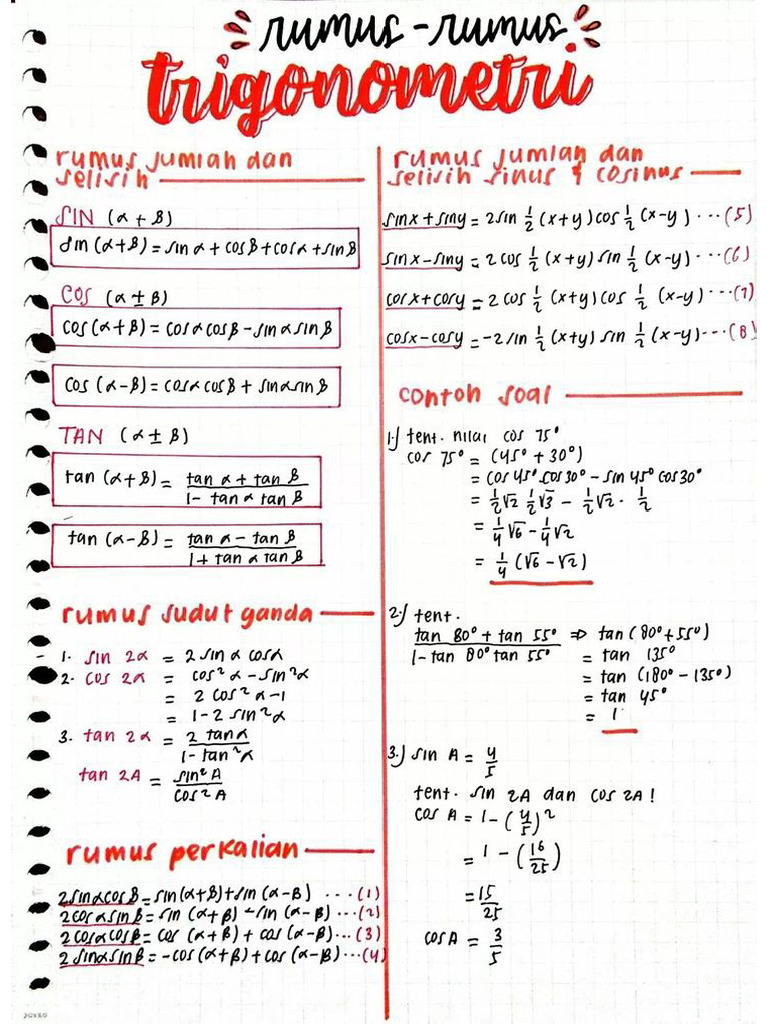 rumus-rumus
trigonometri
rumus jumlah dan
selisih
SIN (α + β)
sin (α+β) = sin α + cos β + cos α + sin β
COS (α ± β)
cos (α+β) = cos α cos β - sin α sin β
cos (α-β) = cos α cos β + sin α sin β
TAN (α ± β)
tan (α+β) = (tan α + tan β)/(1 - tan α tan β)
tan (α-β) = (tan α - tan β)/(1 + tan α tan β)
rumus sudut ganda
1. sin 2α = 2 sin α cos α
2. cos 2α = cos²α - sin²α
= 2 cos²α - 1
= 1 - 2 sin²α
3. tan 2α = 2 tan α/(1 - tan²α)
tan 2A = sin²A/cos²A
rumus perkalian
2 sin α cos β = sin (α+β) + sin (α-β) ...(1)
2 cos α sin β = sin (α+β) - sin (α-β) ...(2)
2 cos α cos β = cos (α+β) + cos (α-β) ...(3)
2 sin α sin β = -cos (α+β) + cos (α-β) ...(4)
rumus jumlah dan
selisih sinus & cosinus
sin x + sin y = 2 sin ½ (x+y) cos ½ (x-y) ...(5)
sin x - sin y = 2 cos ½ (x+y) sin ½ (x-y) ...(6)
cos x + cos y = 2 cos ½ (x+y) cos ½ (x-y) ...(7)
cos x - cos y = -2 sin ½ (x+y) sin ½ (x-y) ...(8)
contoh soal
1.) tent. nilai cos 75°
cos 75° = (45° + 30°)
= cos 45° cos 30° - sin 45° cos 30°
= ½√2 ½√3 - ½√2 · ½
= ¼√6 - ¼√2
= ¼ (√6 - √2)
2.) tent.
(tan 80° + tan 55°)/(1 - tan 80° tan 55°) ⇒ tan (80° + 55°)
= tan 135°
= tan (180° - 135°)
= tan 45°
= 1
3.) sin A = 4/5
tent. sin 2A dan cos 2A!
cos A = 1 - (4/5)²
= 1 - (16/25)
= 15/25
cos A = 3/5